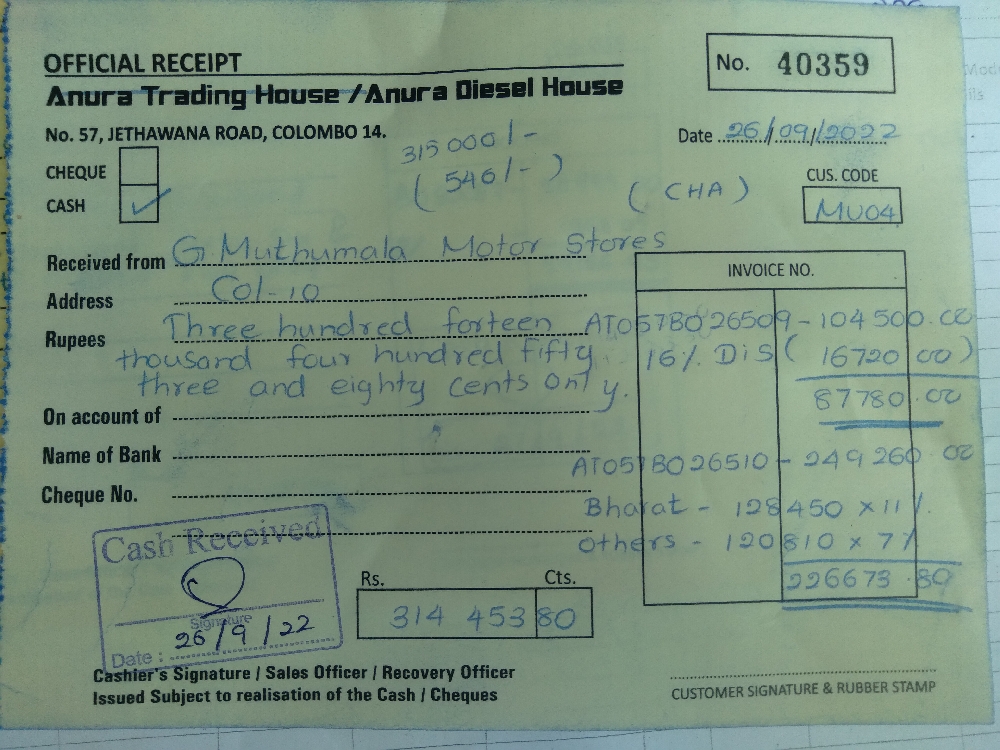 OFFICIAL RECEIPT
No. 40359
Anura Trading House /Anura Diesel House
No. 57, JETHAWANA ROAD, COLOMBO 14.
Date 26/09/2022
315000/-
(546/-)
CHEQUE
CASH ✓
(CHA)
CUS. CODE
MU04
Received from G Muthumala Motor Stores
Address Col-10
INVOICE NO.
Rupees Three hundred forteen
thousand four hundred fifty
three and eighty cents only.
AT057BO26509-104500.00
16% Dis (16720 00)
87780.00
On account of
Name of Bank
Cheque No.
AT057BO26510 - 249260 00
Bharat - 128450 x 11%.
Others - 120810 x 7%
226673.80
Cash Received
Signature
26/9/22
Date :
Rs. Cts.
314 453 80
Cashier's Signature / Sales Officer / Recovery Officer
Issued Subject to realisation of the Cash / Cheques
CUSTOMER SIGNATURE & RUBBER STAMP